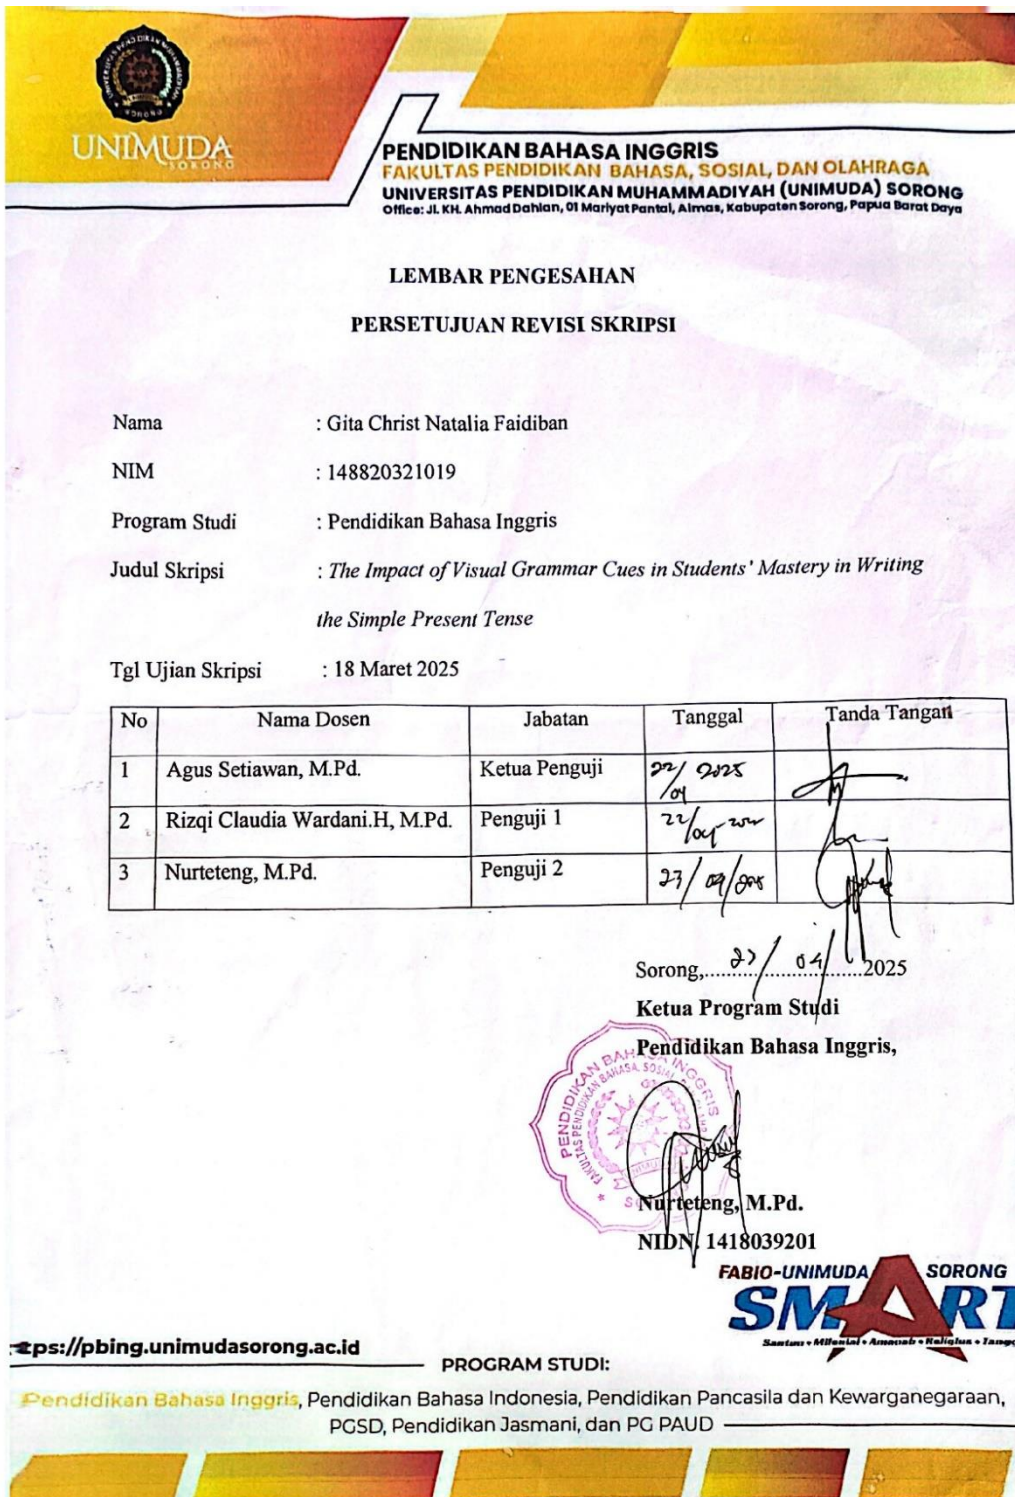 UNIVERSITAS PENDIDIKAN MUHAMMADIYAH
SORONG
UNIMUDA
SORONG
PENDIDIKAN BAHASA INGGRIS
FAKULTAS PENDIDIKAN BAHASA, SOSIAL, DAN OLAHRAGA
UNIVERSITAS PENDIDIKAN MUHAMMADIYAH (UNIMUDA) SORONG
Office: Jl. KH. Ahmad Dahlan, 01 Mariyat Pantai, Aimas, Kabupaten Sorong, Papua Barat Daya
LEMBAR PENGESAHAN
PERSETUJUAN REVISI SKRIPSI
Nama : Gita Christ Natalia Faidiban
NIM : 148820321019
Program Studi : Pendidikan Bahasa Inggris
Judul Skripsi : The Impact of Visual Grammar Cues in Students' Mastery in Writing
the Simple Present Tense
Tgl Ujian Skripsi : 18 Maret 2025
No Nama Dosen Jabatan Tanggal Tanda Tangan
1 Agus Setiawan, M.Pd. Ketua Penguji 22/04 2025
2 Rizqi Claudia Wardani.H, M.Pd. Penguji 1 22/04
3 Nurteteng, M.Pd. Penguji 2 23/04/2025
Sorong,...23/04/...2025
Ketua Program Studi
Pendidikan Bahasa Inggris,
PENDIDIKAN BAHASA INGGRIS
FAKULTAS PENDIDIKAN BAHASA, SOSIAL
Nurteteng, M.Pd.
NIDN. 1418039201
FABIO-UNIMUDA SORONG
SMART
Santun • Milenial • Amanah • Religius • Tangg
tps://pbing.unimudasorong.ac.id
PROGRAM STUDI:
Pendidikan Bahasa Inggris, Pendidikan Bahasa Indonesia, Pendidikan Pancasila dan Kewarganegaraan,
PGSD, Pendidikan Jasmani, dan PG PAUD